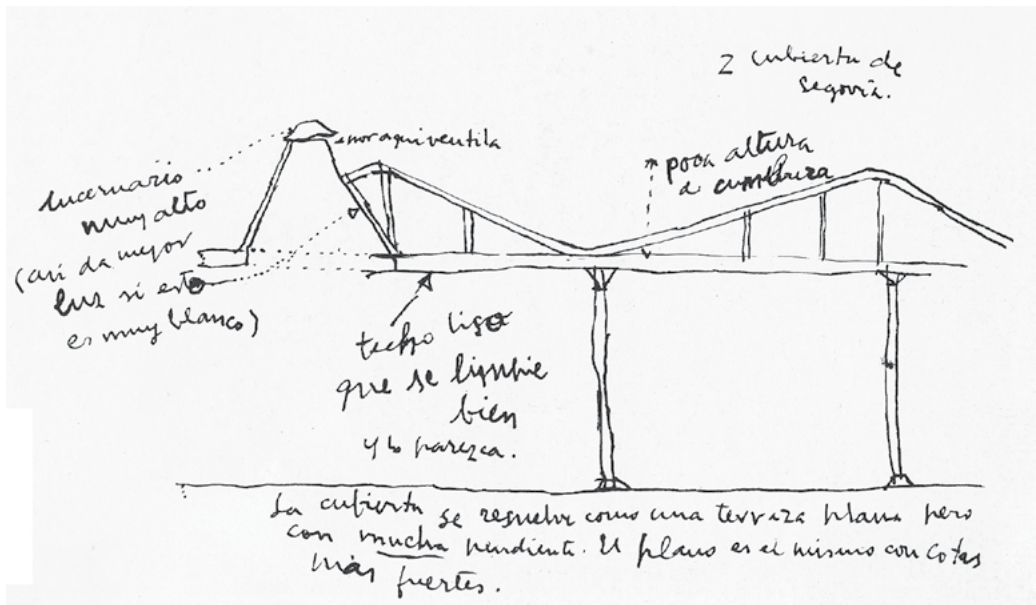 2 cubierta de
segovia.
por aqui ventila
poca altura
a cumbrera
lucernario
muy alto
(asi da mejor
luz si esto
es muy blanco)
techo liso
que se limpie
bien
y lo parezca.
La cubierta se resuelve como una terraza plana pero
con mucha pendiente. El plano es el mismo con cotas
más fuertes.